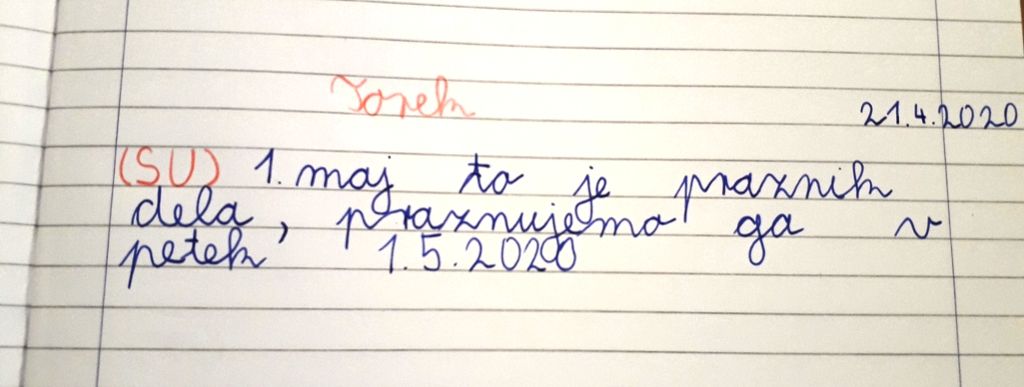 Torek
21.4.2020
(SU) 1. maj to je praznik
dela, praznujemo ga v
petek 1.5.2020